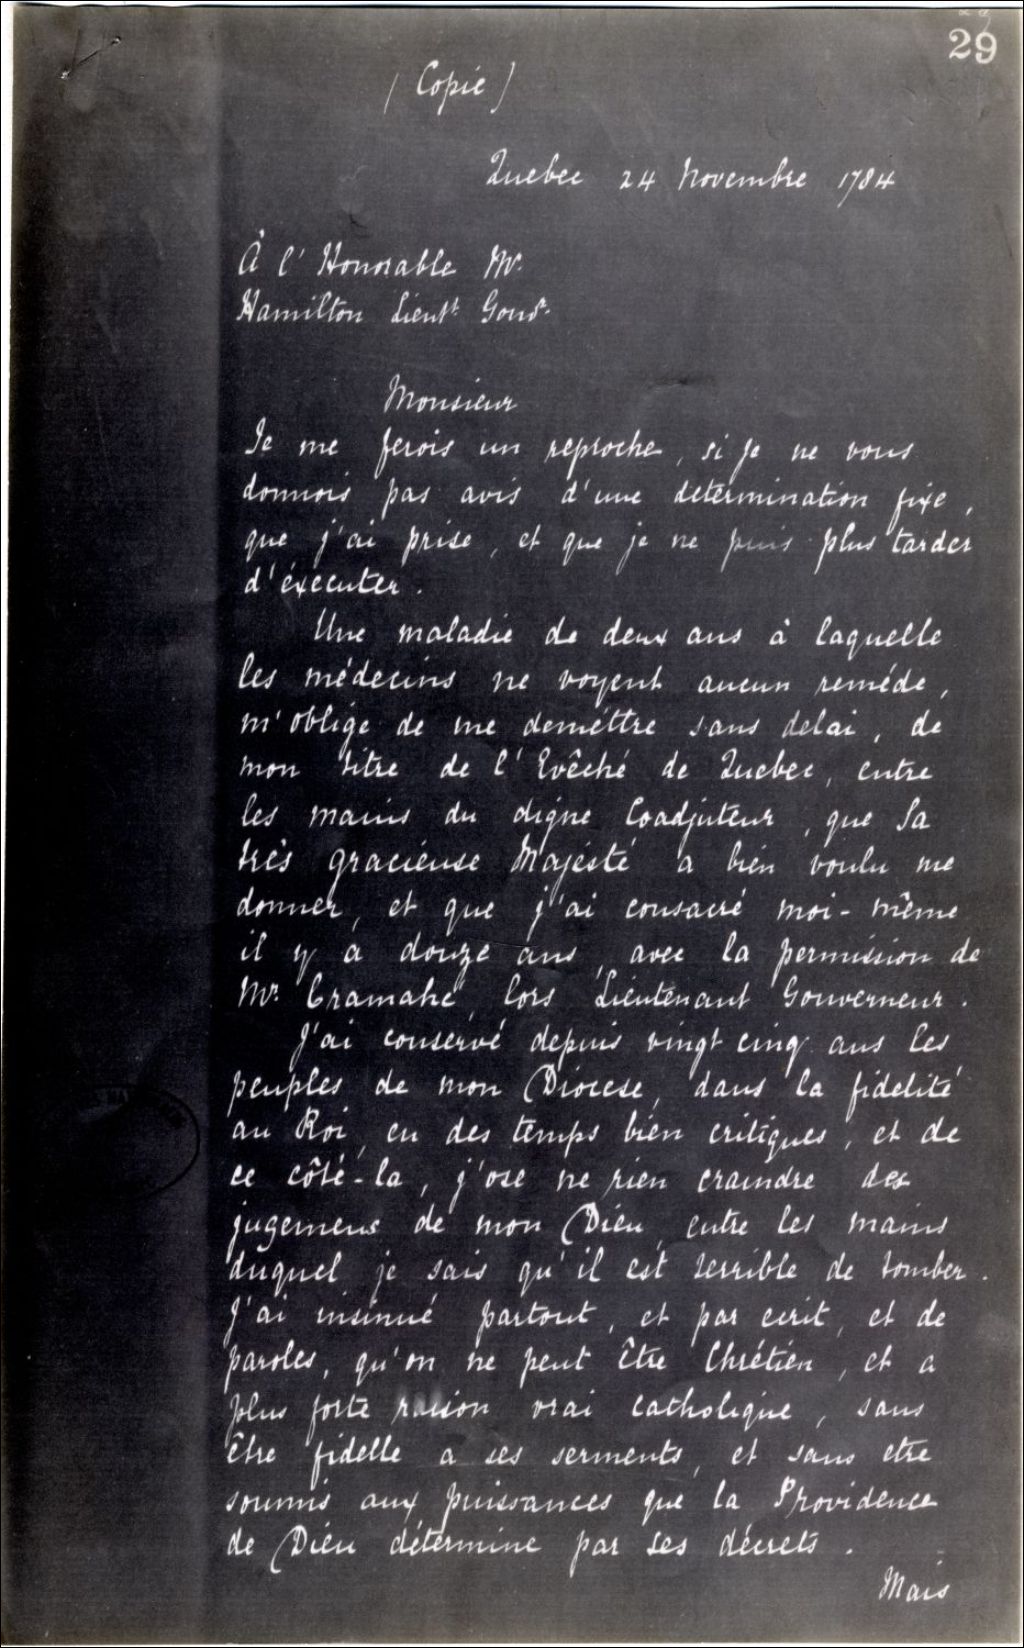 29
(Copie)
Quebec 24 Novembre 1784
À l'Honorable Mr.
Hamilton Lieut. Gouvr.
Monsieur
Je me ferois un reproche, si je ne vous
donnois pas avis d'une détermination fixe,
que j'ai prise, et que je ne puis plus tarder
d'éxécuter.
Une maladie de deux ans à laquelle
les médecins ne voyent aucun reméde,
m'oblige de me deméttre sans delai, de
mon titre de l'Evêché de Quebec, entre
les mains du digne Coadjuteur, que Sa
très gracieuse Majésté a bien voulu me
donner, et que j'ai consacré moi-même
il y à douze ans, avec la permission de
Mr. Cramahé, lors Lieutenant Gouverneur.
J'ai conservé depuis vingt cinq ans les
peuples de mon Diocese, dans la fidelité
au Roi, en des temps bien critiques, et de
ce côté-la, j'ose ne rien craindre des
jugemens de mon Dieu, entre les mains
duquel je sais qu'il est terrible de tomber.
J'ai insinué partout, et par ecrit, et de
paroles, qu'on ne peut être Chrétien, et a
plus forte raison vrai catholique, sans
être fidelle a ses serments, et sans etre
soumis aux puissances que la Providence
de Dieu détermine par ses décrets.
Mais